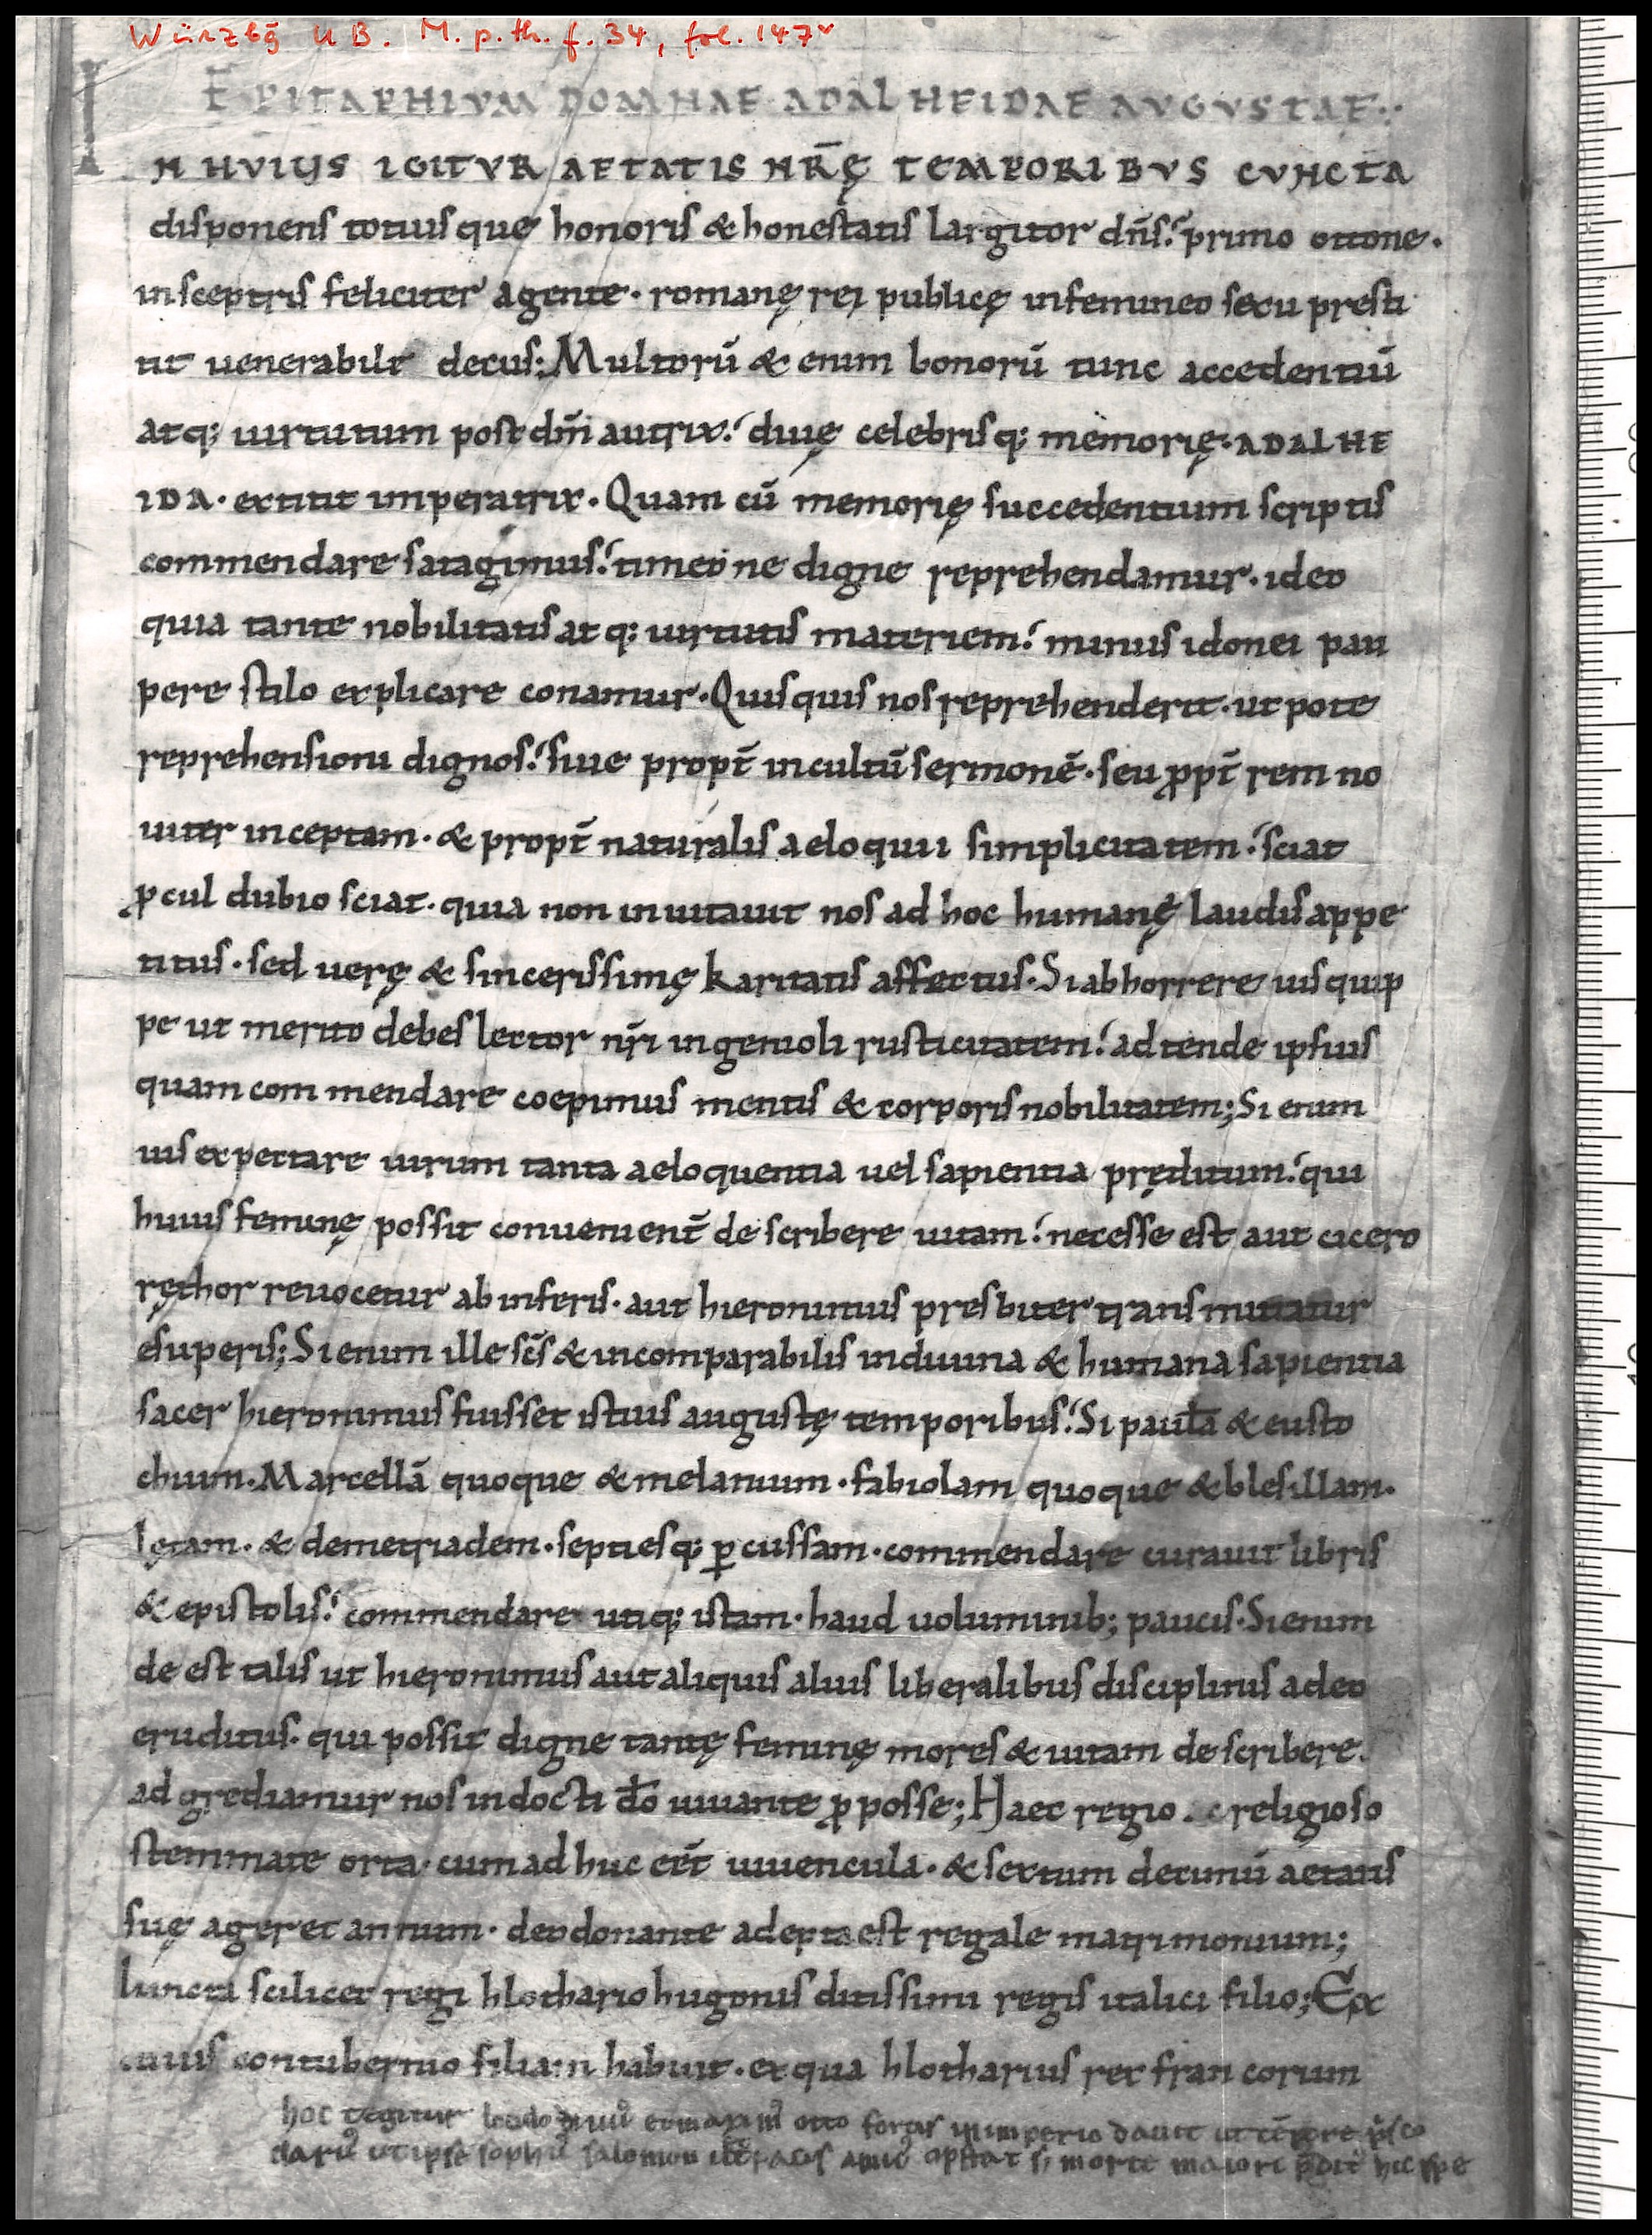 Würzbg UB. M. p. th. f. 34, fol. 147v
EPITAPHIVM DOMNAE ADALHEIDAE AVGVSTAE
IN HVIVS IGITVR AETATIS NR̄Ę TEMPORIBVS CVNCTA
disponens totiusque honoris & honestatis largitor dn̄s. primo ottone.
insceptris feliciter agente. romanę rei publicę infemineo sexu presti
tit uenerabile decus; Multorū & enim bonorū tunc accedentiū
atq; uirtutum post dm̄ autrix. diuę celebrisq; memorię. ADALHE
IDA. extitit imperatrix. Quam cū memorię succedentium scriptis
commendare satagimus. timeo ne digne reprehendamur. ideo
quia tante nobilitatis atq; uirtutis materiem. minus idonei pau
pere stilo explicare conamur. Quisquis nos reprehenderit. ut pote
reprehensioni dignos. siue propt̄ incultū sermonē. seu ꝓpt̄ rem no
uiter inceptam. & propt̄ naturalis aeloquii simplicitatem. sciat
ꝓcul dubio sciat. quia non inuitauit nos ad hoc humanę laudis appe
titus. sed uerę & sincerissimę karitatis affectus. Si abhorrere uis quip
pe ut merito debes lector nr̄i ingenioli rusticitatem. adtende ipsius
quam commendare coepimus mentis & corporis nobilitatem; Si enim
uis expectare uirum tanta aeloquentia uel sapientia pręditum. qui
huius feminę possit conuenient̄ describere uitam. necesse est aut cicero
ręthor reuocetur ab inferis. aut hieronimus presbiter transmittatur
esuperis; Si enim ille sc̄s & incomparabilis indiuina & humana sapientia
sacer hieronimus fuisset istius augustę temporibus. Si paulā & eusto
chium. Marcellā quoque & melanium. fabiolam quoque & blesillam.
lętam. & demetriadem. septiesq; ꝑcussam. commendare curauit libris
& epistolis. commendare utiq; istam. haud uoluminib; paucis. Si enim
de est talis ut hieronimus aut aliquis alius liberalibus disciplinis adeo
eruditus. qui possit digne tantę feminę mores & uitam describere.
adgrediamur nos indocti dō iuuante ꝓ posse; Haec regio religioso
stemmate orta. cum ad huc eēt iuuencula. & sextum decimū aetatis
suę ageret annum. deo donante adepta est regale matrimonium;
Iuncta scilicet regi hlothario hugonis ditissimi regis italici filio; Ex
cuius contubernio filiam habuit. ex qua hlotharius rex francorum
hoc tegitur otto fortis in imperio dauit
ut ipse salomon pacis si morte maiori hic spe